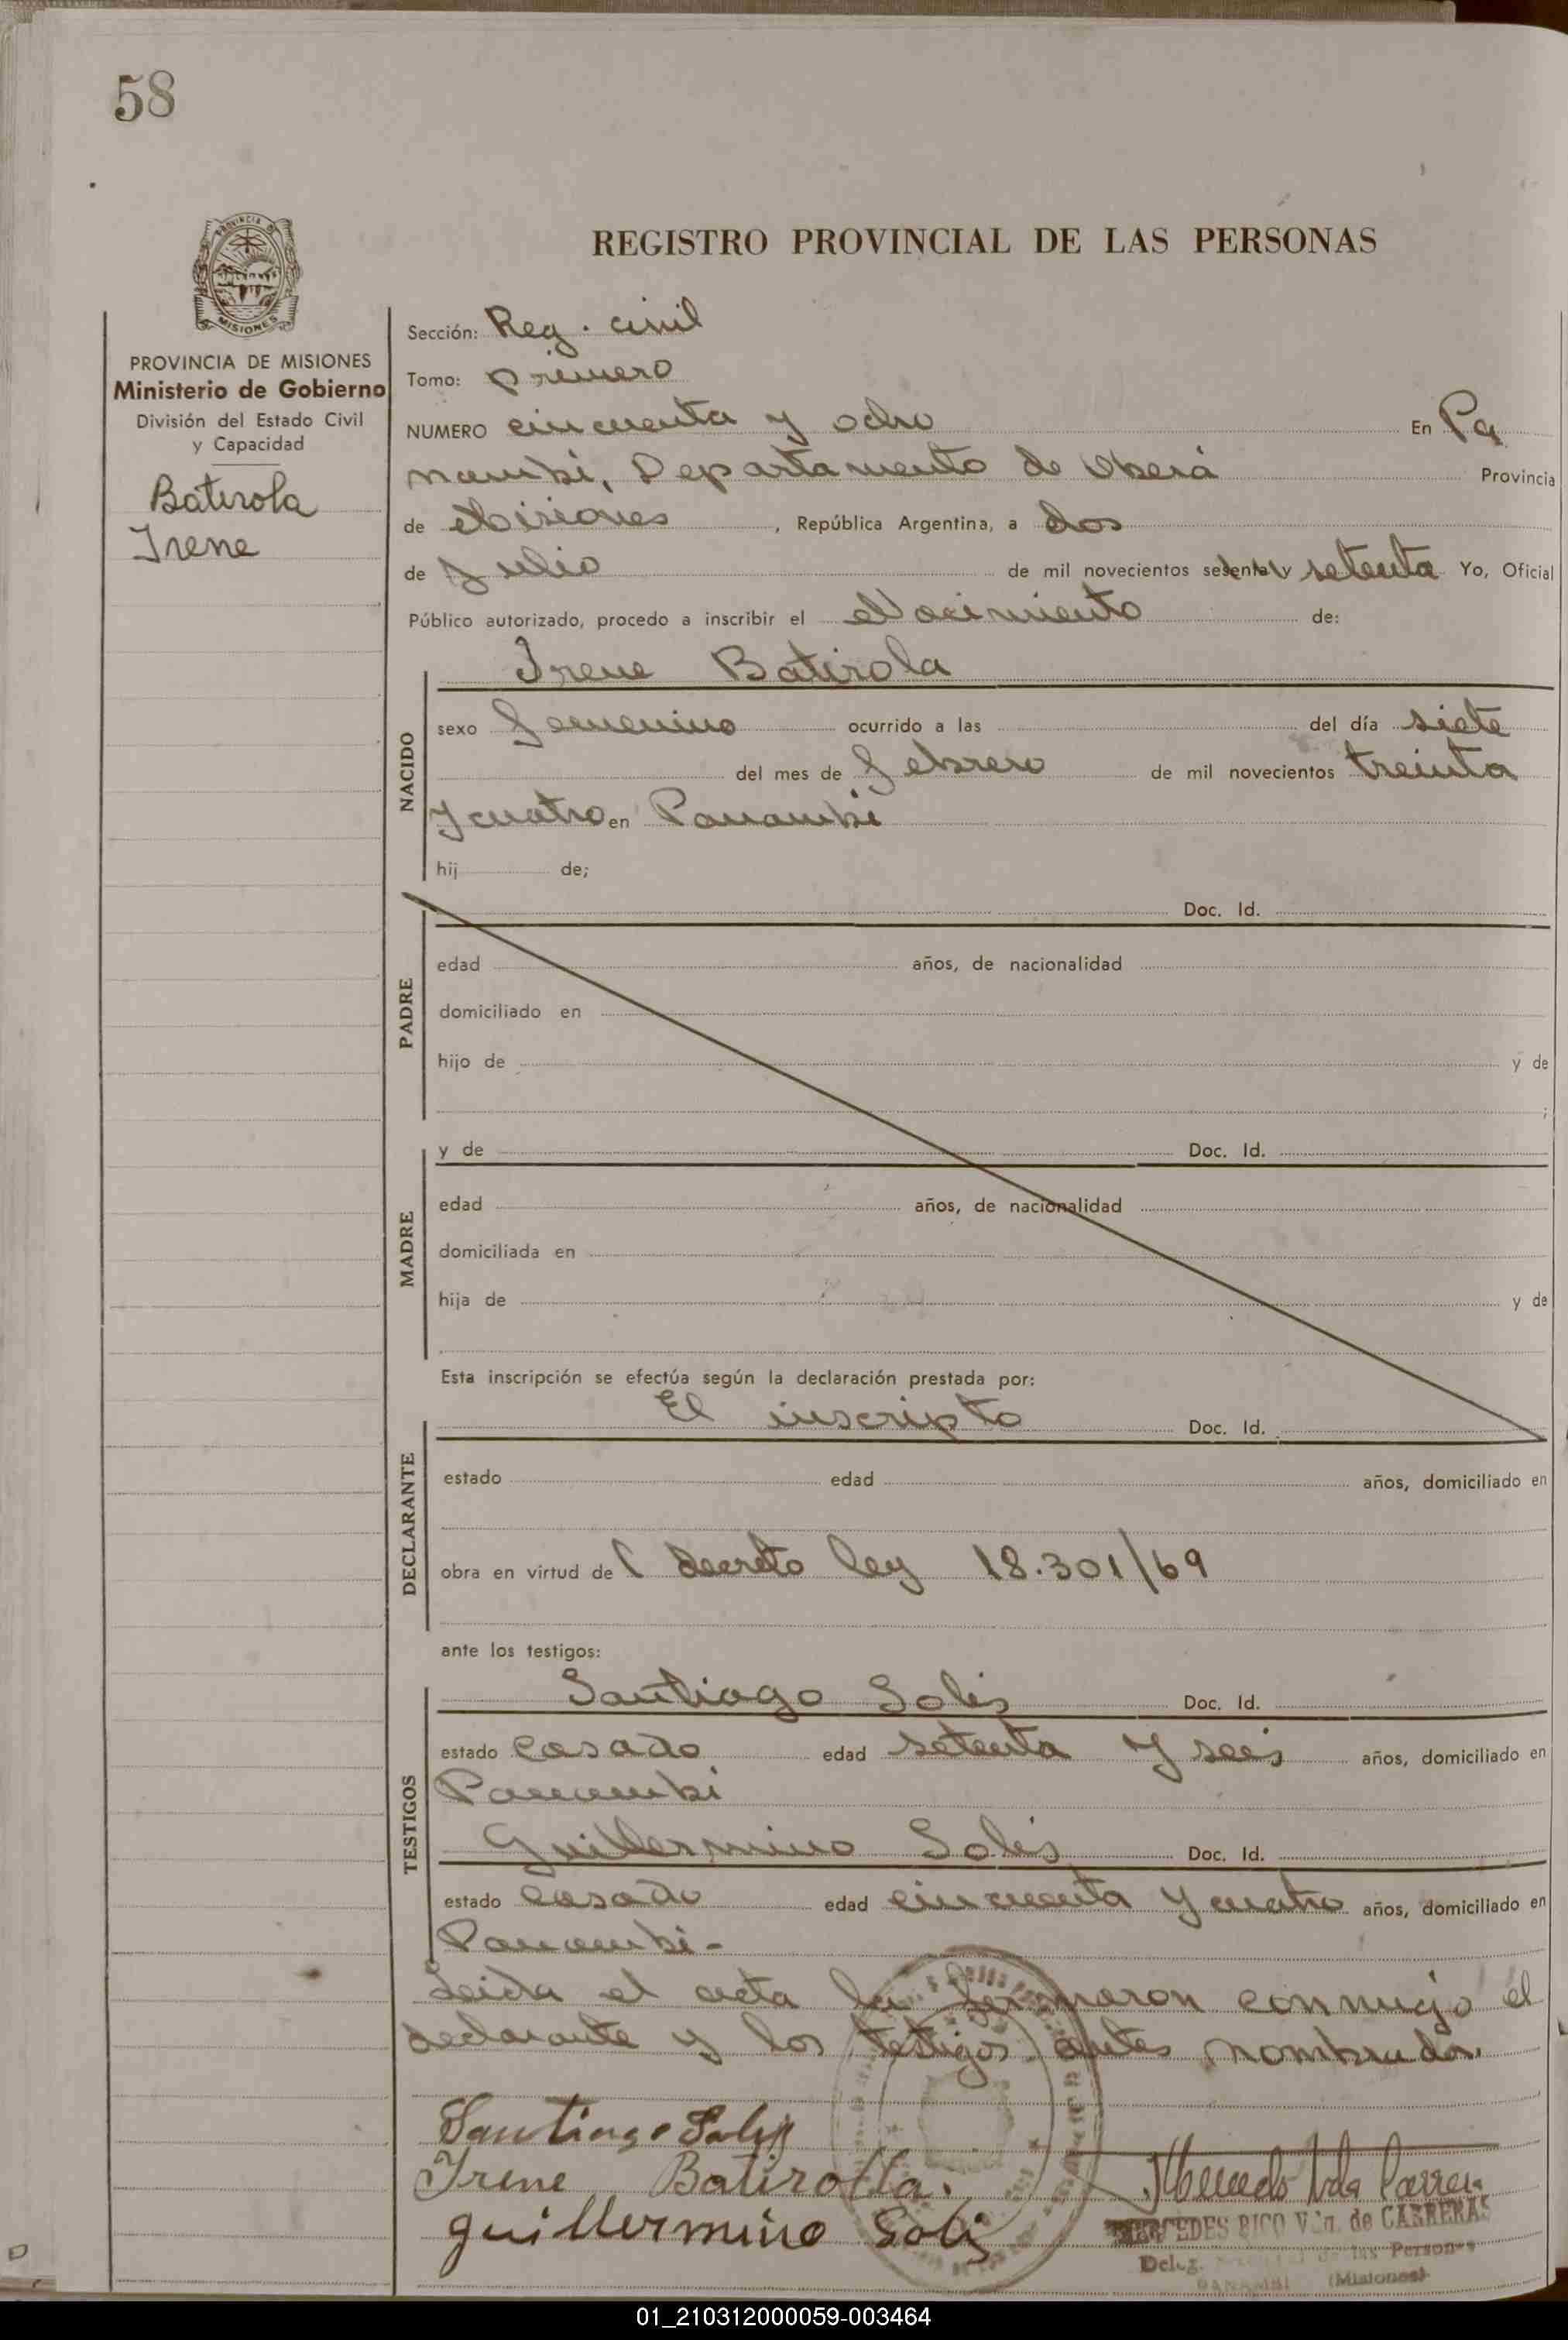 58
PROVINCIA DE
MISIONES
REGISTRO PROVINCIAL DE LAS PERSONAS
PROVINCIA DE MISIONES
Ministerio de Gobierno
División del Estado Civil
y Capacidad
Batirola
Irene
Sección: Reg. civil
Tomo: primero
NUMERO cincuenta y ocho En Pa
nambi, Departamento de Oberá Provincia
de Misiones, República Argentina, a dos
de Julio de mil novecientos sesenta y setenta Yo, Oficial
Público autorizado, procedo a inscribir el Nacimiento de:
NACIDO
Irene Batirola
sexo femenino ocurrido a las del día siete
del mes de febrero de mil novecientos treinta
y cuatro en Panambi
hij de;
PADRE
Doc. Id.
edad años, de nacionalidad
domiciliado en
hijo de y de
;
MADRE
y de Doc. Id.
edad años, de nacionalidad
domiciliada en
hija de y de
Esta inscripción se efectúa según la declaración prestada por:
DECLARANTE
El inscripto Doc. Id.
estado edad años, domiciliado en
obra en virtud de l decreto ley 18.301/69
ante los testigos:
TESTIGOS
Santiago Solis Doc. Id.
estado casado edad setenta y seis años, domiciliado en
Panambi
Guillermino Solis Doc. Id.
estado casado edad cincuenta y cuatro años, domiciliado en
Panambi-
Leida el acta la firmaron conmigo el
declarante y los testigos antes nombrados.
Santiago Solis
Irene Batirolla.
guillermino Solis
MERCEDES RICO Vda. de CARRERAS
Deleg. de las Personas
PANAMBI (Misiones)
01_210312000059-003464